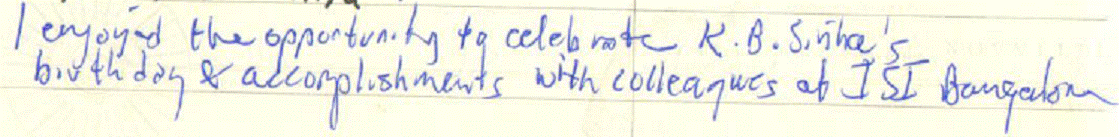 I enjoyed the opportunity to celebrate K.B. Sinha's
birthday & accomplishments with colleagues at ISI Bangalore